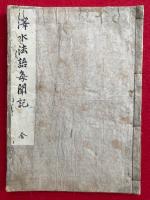 澤水法語毎聞記 全